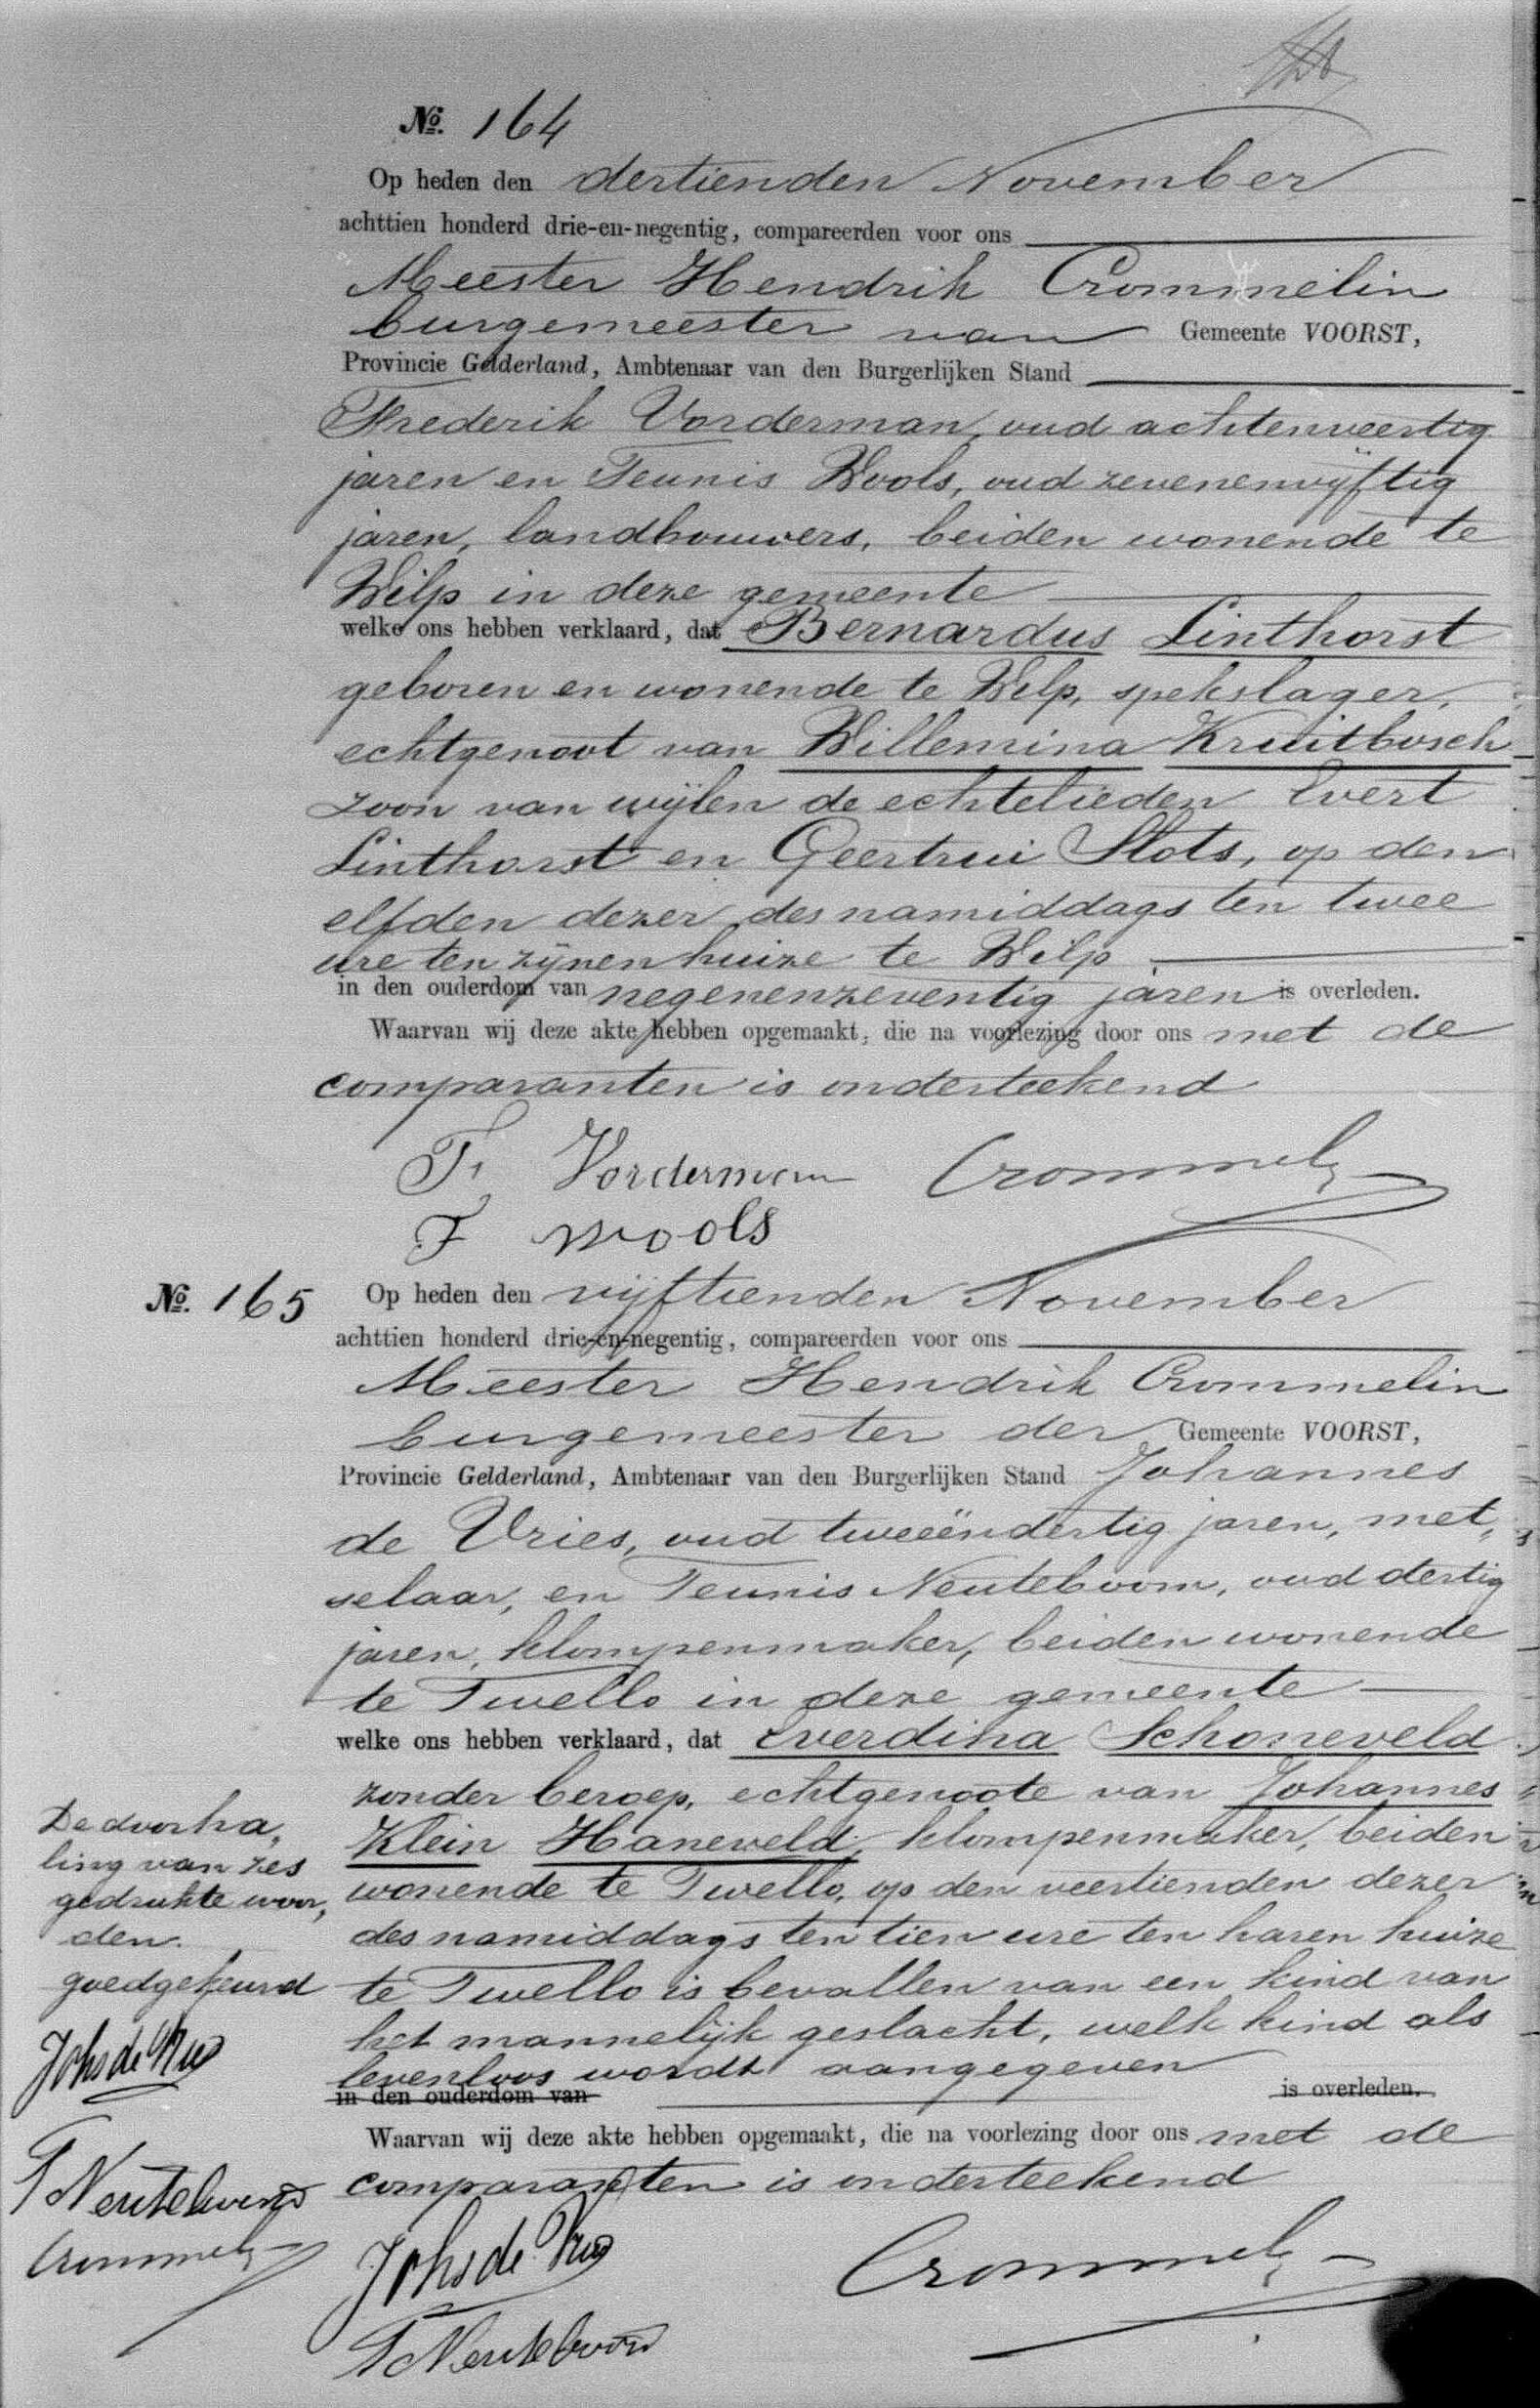 No. 164
Op heden den dertienden November
achttien honderd drie-en-negentig, compareerden voor ons
Meester Hendrik Crommelin
burgemeester van Gemeente VOORST,
Provincie Gelderland, Ambtenaar van den Burgerlijken Stand
Frederik Vorderman, oud achtenveertig
jaren en Teunis Wools, oud zevenenvijftig
jaren, landbouwers, beiden wonende te
Wilp in deze gemeente
welke ons hebben verklaard, dat Bernardus Linthorst
geboren en wonende te Wilp, spekslager,
echtgenoot van Willemina Kruitbosch
zoon van wijlen de echtelieden Evert
Linthorst en Geertrui Slots, op den
elfden dezer des namiddags ten twee
ure ten zijnen huize te Wilp
in den ouderdom van negenenzeventig jaren is overleden.
Waarvan wij deze akte hebben opgemaakt, die na voorlezing door ons met de
comparanten is onderteekend
F. Vorderman Crommelin
T Wools
No. 165 Op heden den vijftienden November
achttien honderd drie-en-negentig, compareerden voor ons
Meester Hendrik Crommelin
burgemeester der Gemeente VOORST,
Provincie Gelderland, Ambtenaar van den Burgerlijken Stand Johannes
de Vries, oud tweeëndertig jaren, met,
selaar, en Teunis Neuteboom, oud dertig
jaren, klompenmaker, beiden wonende
te Twello in deze gemeente
welke ons hebben verklaard, dat Everdina Schoneveld
zonder beroep, echtgenoote van Johannes
Klein Haneveld, klompenmaker, beiden
wonende te Twello, op den veertienden dezer
des namiddags ten tien ure ten haren huize
te Twello is bevallen van een kind van
het mannelijk geslacht, welk kind als
levenloos wordt aangegeven
in den ouderdom van is overleden.
Waarvan wij deze akte hebben opgemaakt, die na voorlezing door ons met de
comparanten is onderteekend
Johs de Vries Crommelin
T Neuteboom
De doorha,
ling van zes
gedrukte woor,
den.
goedgekeurd
Johs de Vries
T Neuteboom
Crommelin